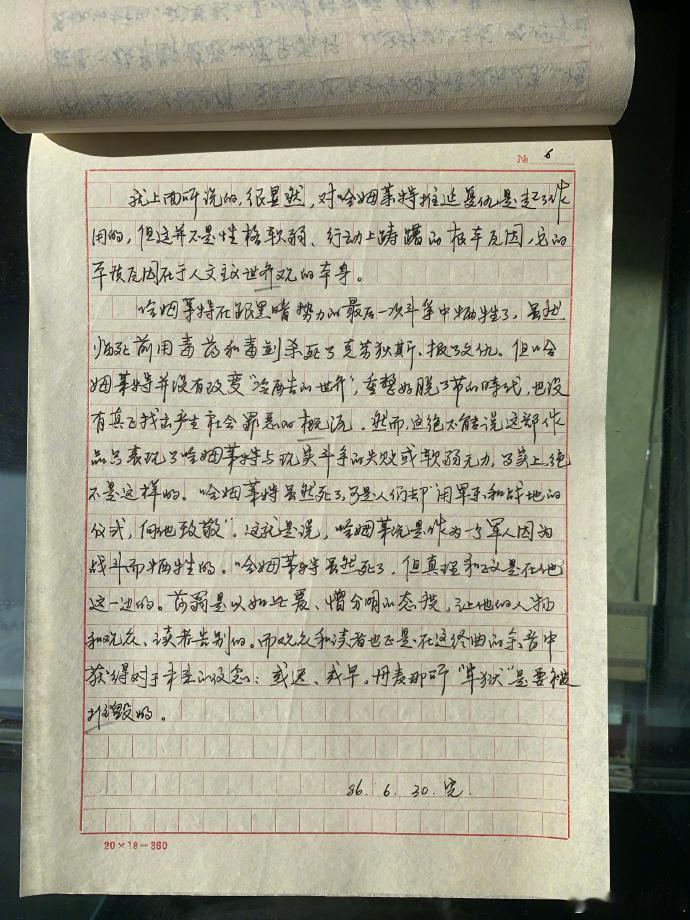 № 6
我上面所说的,很显然,对哈姆莱特推迟复仇是起了作
用的,但这并不是性格软弱、行动上踌躇的根本原因,它的
真正原因在于人文主义世界观的本身。
哈姆莱特在跟黑暗势力的最后一次斗争中牺牲了,虽然
临死前用毒药和毒剑杀死了克劳狄斯、报了父仇。但哈
姆莱特并没有改变“冷酷的世界”,重整好脱了节的时代,也没
有真正找出产生社会罪恶的根源。然而,这绝不能说这部作
品只表现了哈姆莱特与现实斗争的失败或软弱无力,事实上,绝
不是这样的。哈姆莱特虽然死了,可是人们却“用军乐和战地的
仪式,向他致敬”。这就是说,哈姆莱特是作为一个军人因为
战斗而牺牲的。哈姆莱特虽然死了,但真理和正义是在他
这一边的。莎翁是以如此爱、憎分明的态度,让他的人物
和观众、读者告别的。而观众和读者也正是在这终曲的余音中
获得对于未来的信念:或迟、或早,丹麦那所“牢狱”是要被
摧毁的。
86. 6. 30. 完.
20×18=360